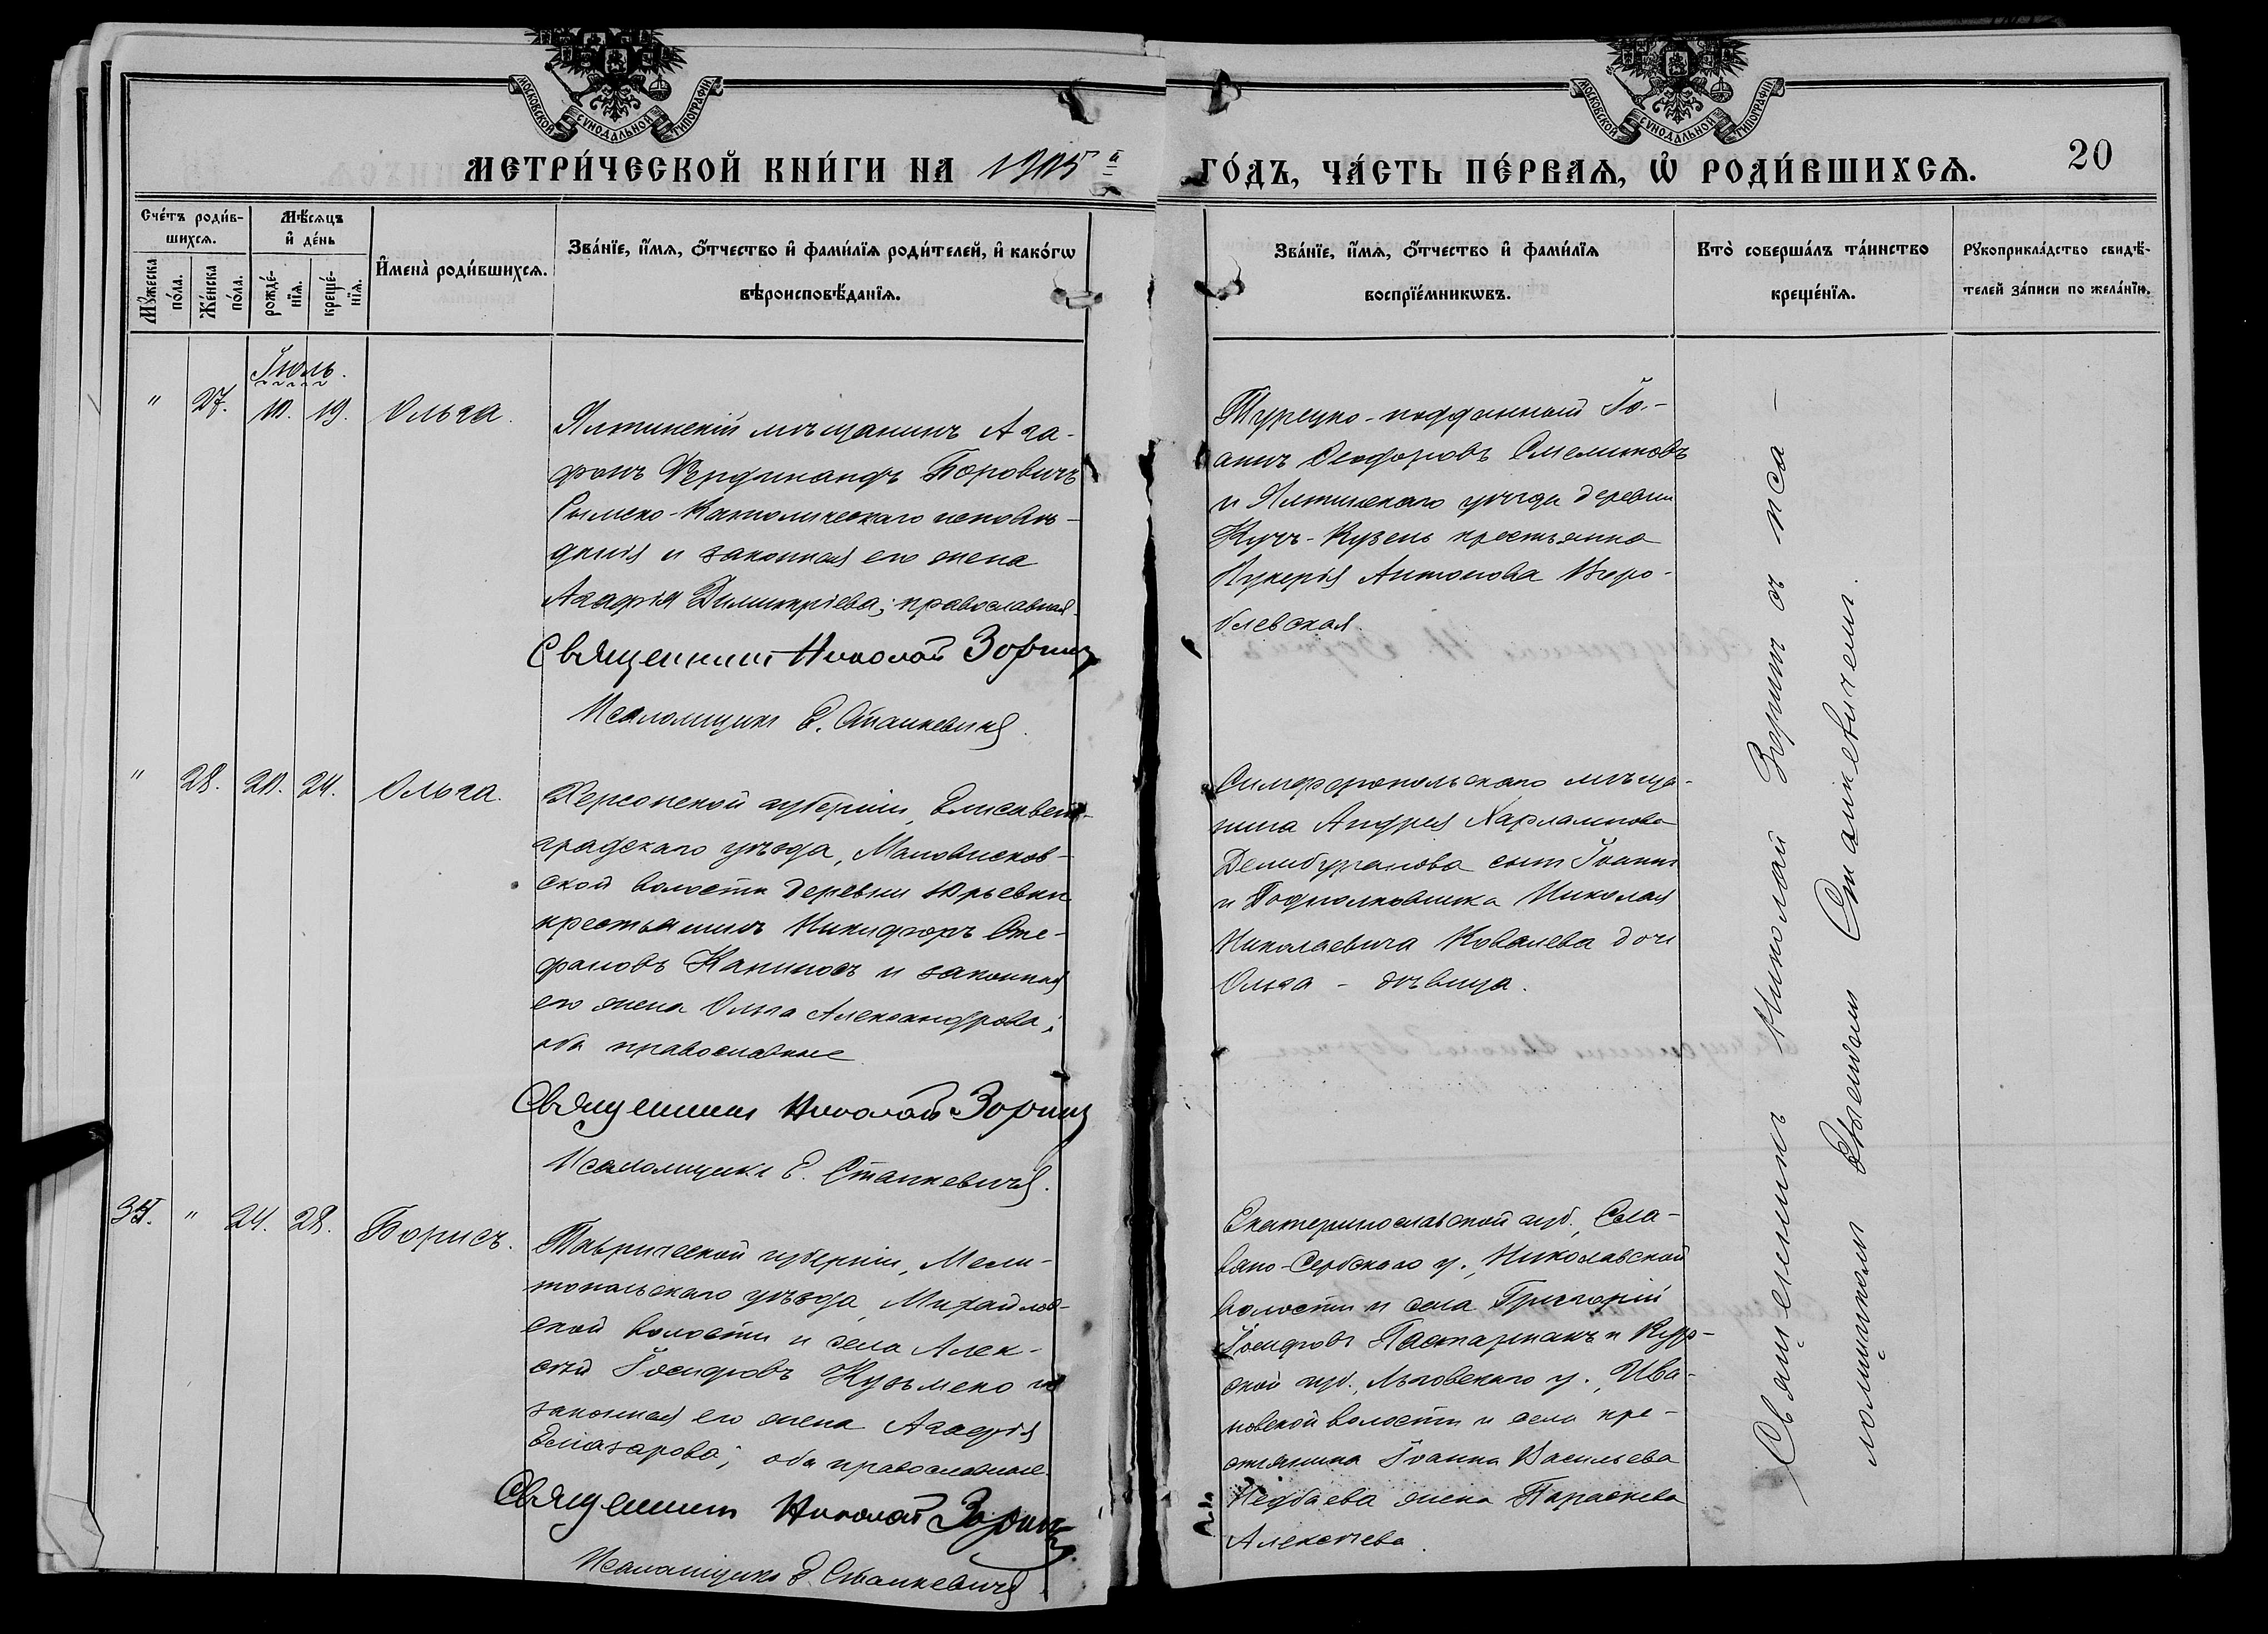 МОСКОВСКОЙ СУНОДАЛЬНОЙ ТИПОГРАФІИ
МОСКОВСКОЙ СУНОДАЛЬНОЙ ТИПОГРАФІИ
МЕТРИ́ЧЕСКОЙ КНИ́ГИ НА 1905 й
ГО́ДЪ, ЧА́СТЬ ПЕ́РВАѦ, Ѽ РОДИ́ВШИХСѦ.
20
Сче́тъ роди́в-
шихсѧ.
Мꙋ́жеска по́ла.
Же́нска по́ла.
Мѣ́сѧцъ
и҆ де́нь
рожде́-
нїѧ.
креще́-
нїѧ.
И҆мена̀ роди́вшихсѧ.
Зва́нїе, и҆́мѧ, ѻ҆́тчество и҆ фами́лїѧ роди́телей, и҆ како́гѡ
вѣроисповѣ́данїѧ.
Зва́нїе, и҆́мѧ, ѻ҆́тчество и҆ фами́лїѧ
воспрїе́мникѡвъ.
Кто̀ соверша́лъ та́инство
креще́нїѧ.
Рꙋкоприкла́дство свидѣ́-
телей за́писи по жела́нїю.
Іюль.
" 27. 10. 19. Ольга.
Ялтинскій мѣщанинъ Ага-
фонъ Фердинандъ Боровичъ
Римско-Католическаго исповѣ-
данія и законная его жена
Агафія Димитріева; православная.
Священникъ Николай Зоринъ
Псаломщикъ Е. Станкевичъ.
Турецко-подданный Іо-
аннъ Ѳеодоровъ
и Ялтинскаго уѣзда деревни
Кучъ-Кузень крестьянка
Лукерія Антонова
" 28. 20. 24. Ольга.
Херсонской губерніи, Елисавет-
градскаго уѣзда, Маловисков-
ской волости деревни Юрьевки
крестьянинъ Никифоръ Сте-
фановъ и законная
его жена Ольга Александрова;
оба православные
Священникъ Николай Зоринъ
Псаломщикъ Е. Станкевичъ.
Симферопольскаго мѣща-
нина Андрея Харлампова
сынъ Іоаннъ
и Подполковника Николая
Николаевича Ковалева дочь
Ольга - дѣвица.
" 24. 28. Борисъ.
Таврической губерніи, Мели-
топольскаго уѣзда, Михайлов-
ской волости и села Алек-
сѣй Іосифовъ Кузьменко и
законная его жена Агафія
Елиазарова; оба православные.
Священникъ Николай Зоринъ
Псаломщикъ Е. Станкевичъ
Екатеринославской губ., Сла-
вяно-Сербскаго у., Николаевской
волости и села Григорій
Іосифовъ Пастарнакъ и Кур-
ской губ., Льговскаго у., Ива-
новской волости и села кре-
стьянина Іоанна Васильева
жена Параскева
Алексѣева.
Священникъ Николай Зоринъ съ пса-
ломщикомъ Станкевичемъ.